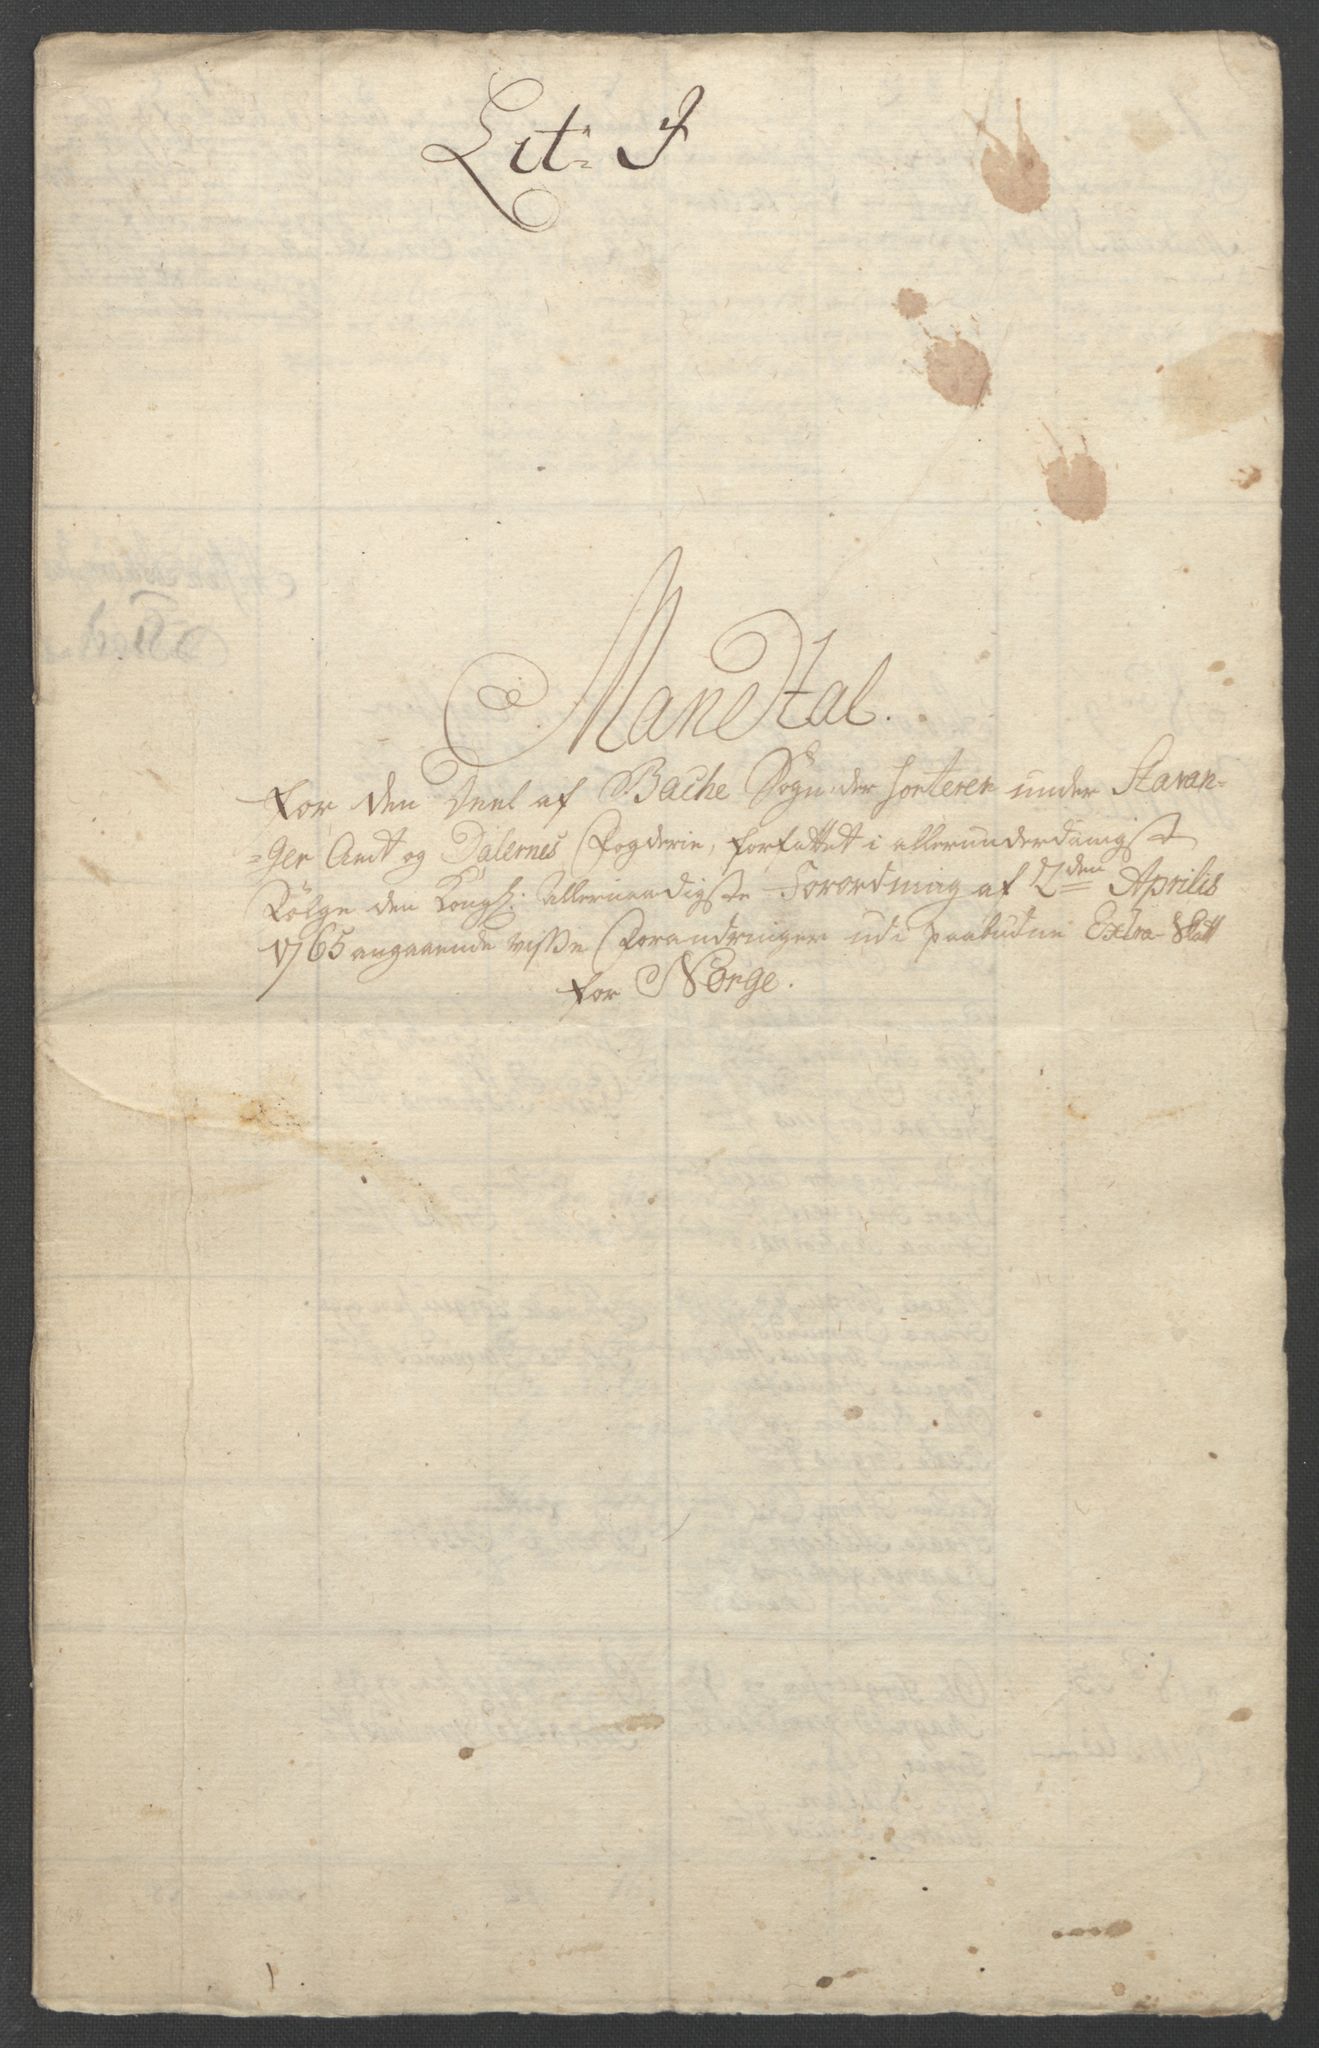 Lit: J
Mandtal.
for den Deel af Bache Sogn der sorterer under Stavan-
=ger Amt og Dalernes Fogderie, forfattet i allerunderdanigst
Følge den Kongl: Allernaadigste Forordning af 2den Aprilis
1765 angaaende visse Forandringer udi paabudne Extra-Skatt
for Norge.